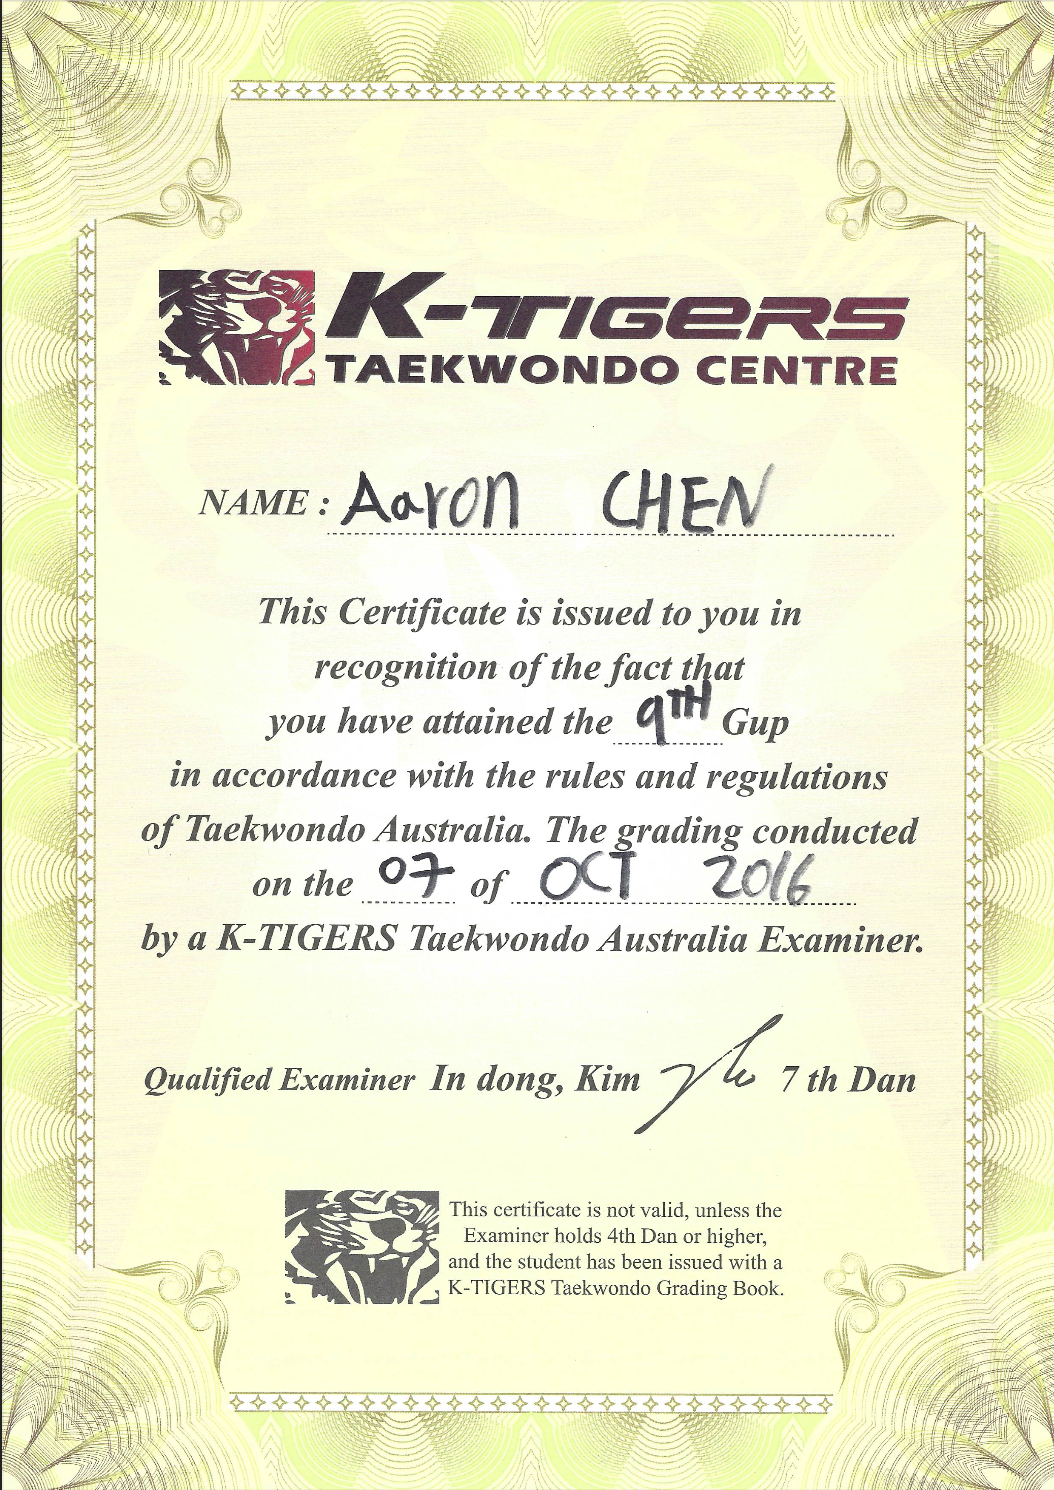 K-TIGERS
TAEKWONDO CENTRE
NAME : Aaron CHEN
This Certificate is issued to you in
recognition of the fact that
you have attained the 9TH Gup
in accordance with the rules and regulations
of Taekwondo Australia. The grading conducted
on the 07 of OCT 2016
by a K-TIGERS Taekwondo Australia Examiner.
Qualified Examiner In dong, Kim 7 th Dan
This certificate is not valid, unless the
Examiner holds 4th Dan or higher,
and the student has been issued with a
K-TIGERS Taekwondo Grading Book.